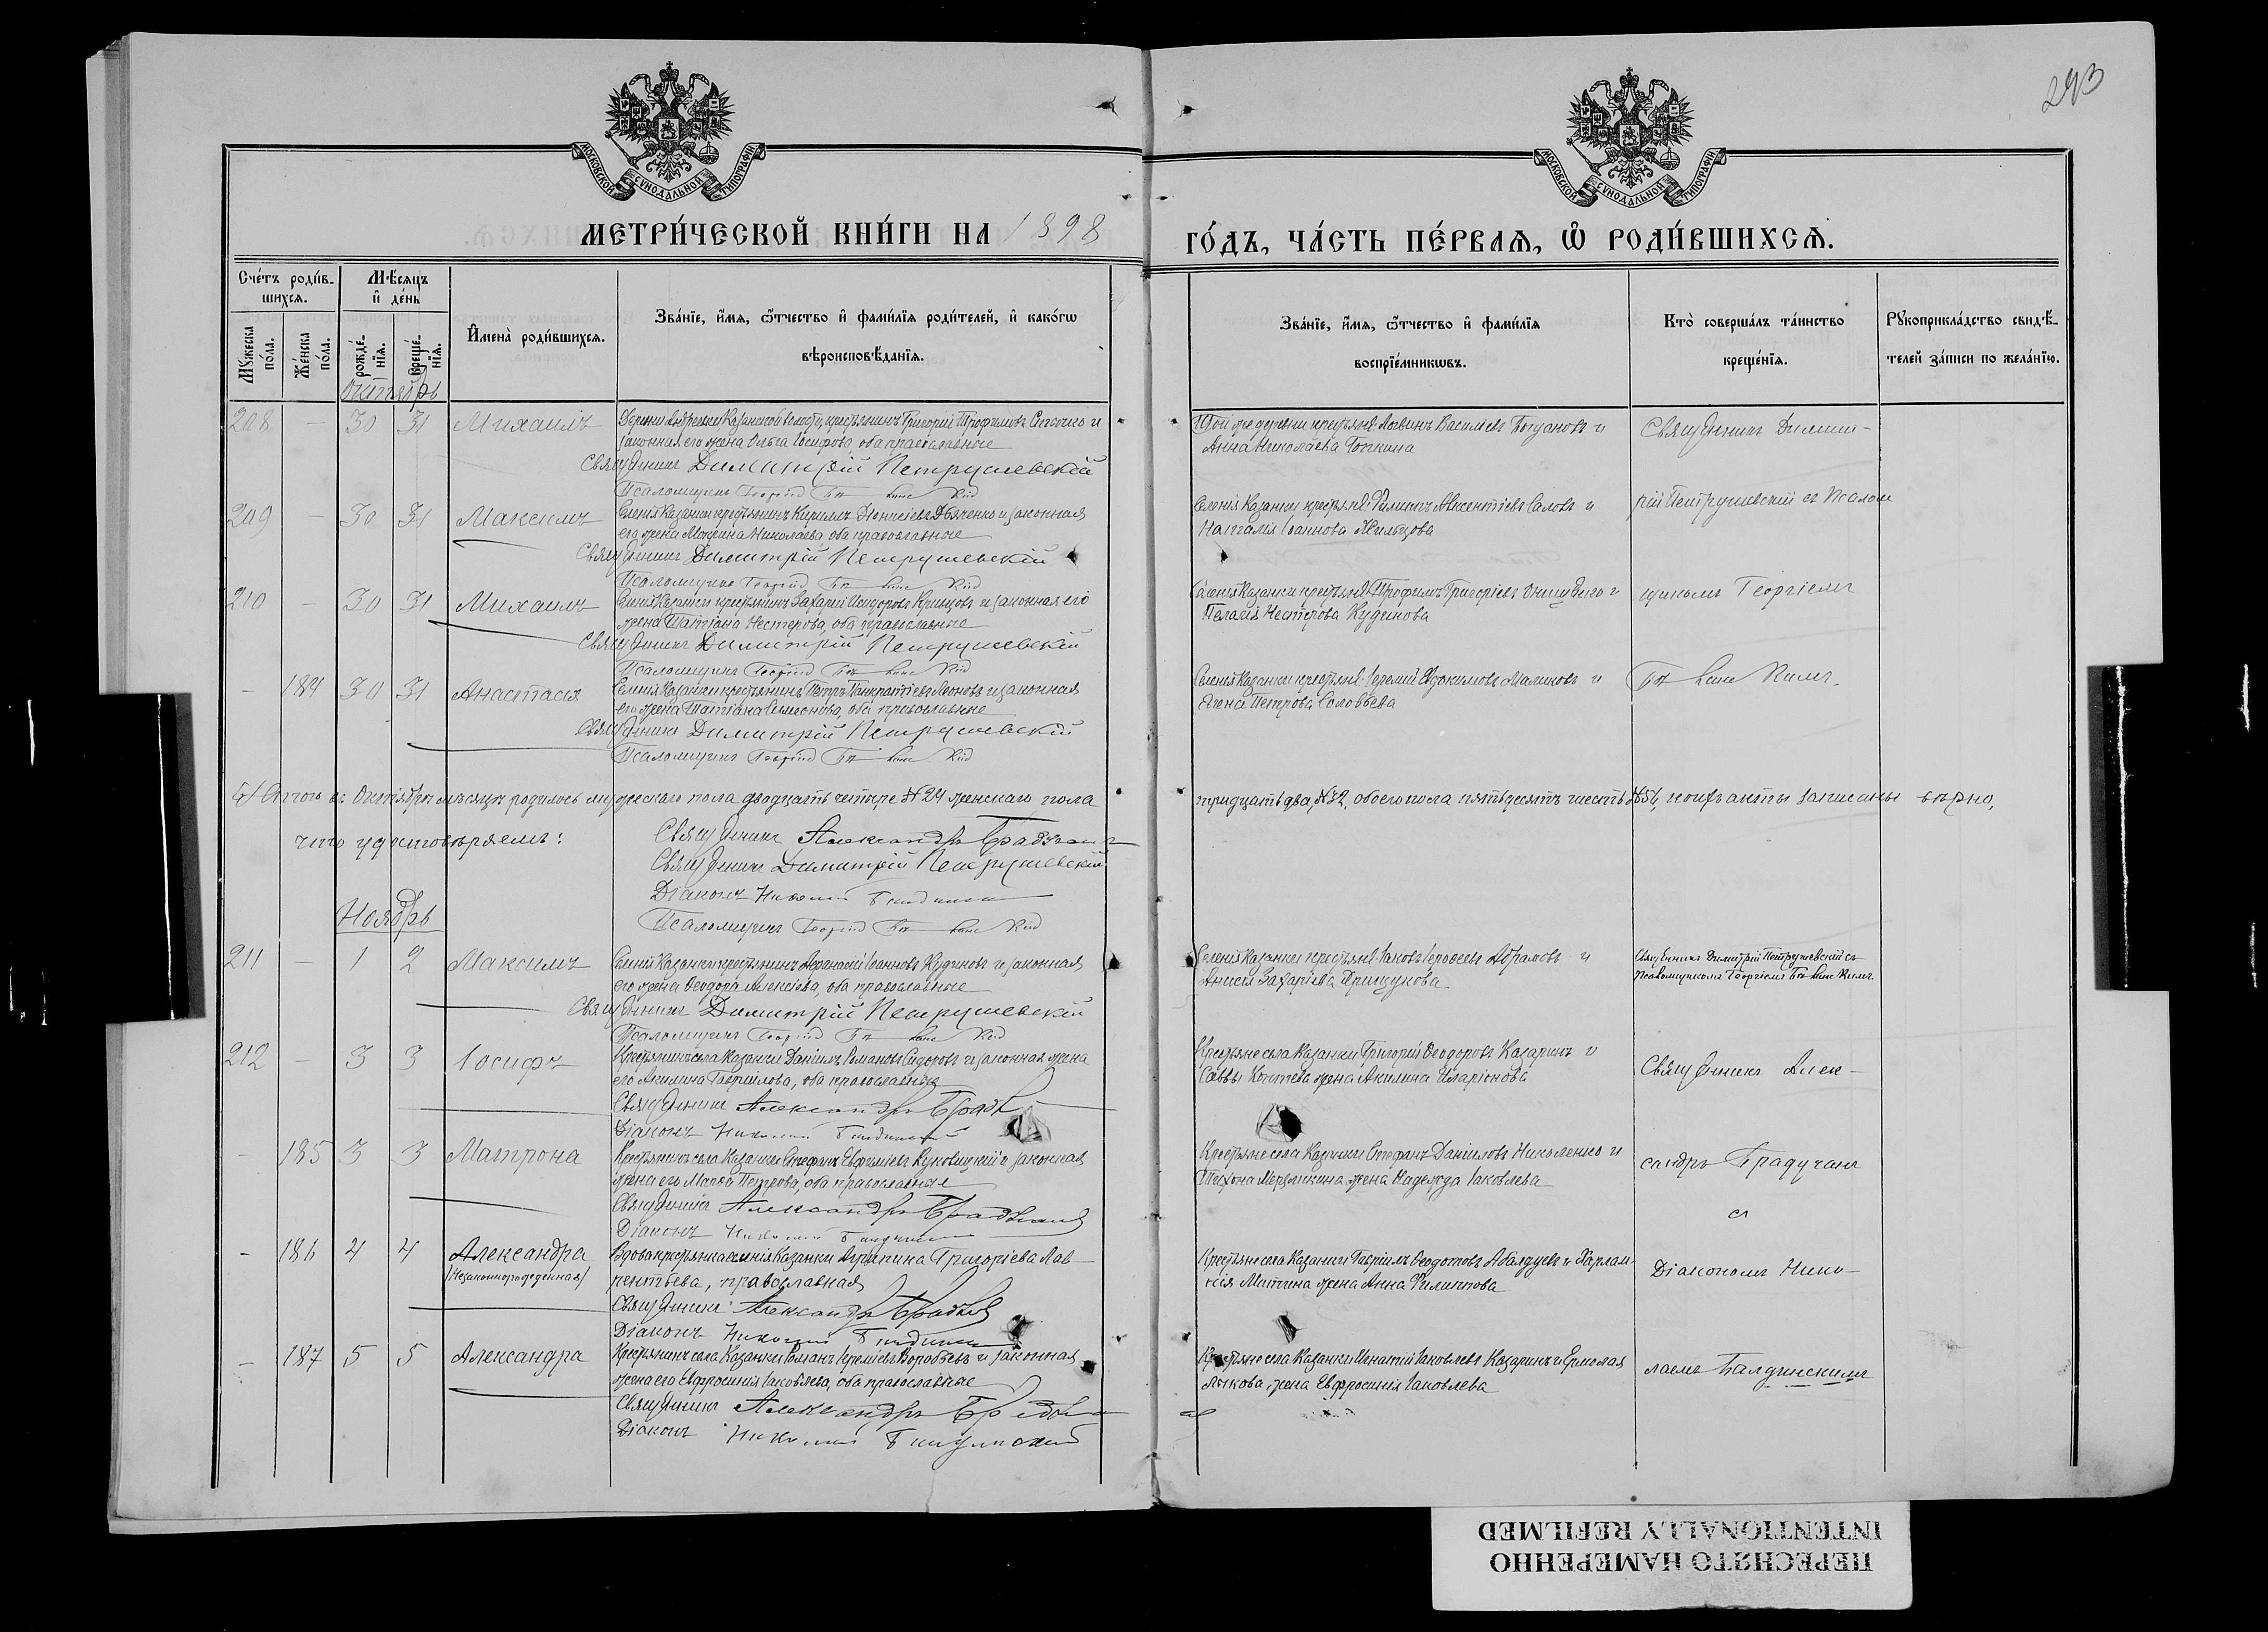 293
МОСКОВСКОЙ СѴНОДАЛЬНОЙ ТИПОГРАФІИ
МОСКОВСКОЙ СѴНОДАЛЬНОЙ ТИПОГРАФІИ
МЕТРИ́ЧЕСКОЙ КНИ́ГИ НА 1898
ГО́ДЪ, ЧА́СТЬ ПЕ́РВАЯ, Ѡ РОДИ́ВШИХСЯ.
Сче́тъ роди́в-
шихся.
Мꙋ́жеска по́ла.
Же́нска по́ла.
Мѣ́сяцъ и҆ де́нь
рожде́-нїя.
креще́-нїя.
И҆мена̀ роди́вшихся.
Зва́нїе, и҆́мя, ѻ҆́тчество и҆ фами́лїя роди́телей, и҆ како́гѡ
вѣроисповѣ́данїя.
Зва́нїе, и҆́мя, ѻ҆́тчество и҆ фами́лїя
воспрїе́мникѡвъ.
Кто̀ соверша́лъ та́инство
креще́нїя.
Рꙋкоприкла́дство свидѣ́-
телей за́писи по жела́нїю.
Октябрь
208 – 30 31 Михаилъ
Деревни Андреевки Казанской волости, крестьянинъ Григорій Трофимовъ и
законная его жена Ольга Іосифова, оба православные
Священникъ Димитрій Петрушевскій
Псаломщикъ Георгій
Той же деревни крестьяне Василіевъ Богдановъ и
Анна Николаева
Священникъ Димит-
209 – 30 31 Максимъ
Селенія Казанки крестьянинъ Кириллъ Діонисіевъ Дьяченко и законная
его жена Николаева, оба православные
Священникъ Димитрій Петрушевскій
Псаломщикъ Георгій
Селенія Казанки крестьяне Филиппъ Авксентіевъ и
Наталія Іоаннова
рій Петрушевскій съ Псалом
210 – 30 31 Михаилъ
Селенія Казанки крестьянинъ Захарій Исидоровъ Кривцовъ и законная его
жена Татіана Нестерова, оба православные
Священникъ Димитрій Петрушевскій
Псаломщикъ Георгій
Селенія Казанки крестьяне Трофимъ Григоріевъ Онищенко и
Пелагія Нестерова Кудинова
щикомъ Георгіемъ
– 184 30 31 Анастасія
Селенія Казанки крестьянинъ Петръ Панкратіевъ Леоновъ и законная
его жена Татіана Симеонова, оба православные
Священникъ Димитрій Петрушевскій
Псаломщикъ Георгій
Селенія Казанки крестьяне Іеремій Евдокимовъ Маликовъ и
Елена Петрова Соловьева
Итого въ Октябрѣ мѣсяцѣ родилось мужескаго пола двадцать четыре №24 женскаго пола
тридцать два, №32, обоего пола пятьдесятъ шесть №56, коихъ акты записаны вѣрно,
что удостовѣряемъ:
Священникъ Александръ
Священникъ Димитрій Петрушевскій
Діаконъ Николай
Псаломщикъ Георгій
Ноябрь
211 – 1 2 Максимъ
Селенія Казанки крестьянинъ Аѳанасій Іоанновъ Кудиновъ и законная
его жена Ѳеодора Алексіева, оба православные
Священникъ Димитрій Петрушевскій
Псаломщикъ Георгій
Селенія Казанки крестьяне Іаковъ Іероѳеевъ Абрамовъ и
Анисія Захаріева Грищукова
Священникъ Димитрій Петрушевскій съ
Псаломщикомъ Георгіемъ
212 – 3 3 Іосифъ
Крестьянинъ села Казанки Даніилъ Романовъ Сидоровъ и законная жена
его Акилина Гавріилова, оба православные
Священникъ Александръ
Діаконъ Николай
Крестьяне села Казанки Григорій Ѳеодоровъ Казаринъ и
Саввы Коптева жена Акилина Иларіонова
Священникъ Алек-
– 185 3 3 Матрона
Крестьянинъ села Казанки Стефанъ Евфиміевъ и законная
жена его Петрова, оба православные
Священникъ Александръ
Діаконъ Николай
Крестьяне села Казанки Стефанъ Даніиловъ Николенко и
жена Надежда Іаковлева
сандръ
съ
– 186 4 4 Александра
(Незаконнорожденная)
Вдова крестьянка селенія Казанки Агрипина Григоріева Лав-
рентьева, православная
Священникъ Александръ
Діаконъ Николай
Крестьяне села Казанки Гавріилъ Ѳедотовъ Абалдуевъ и Харлам-
пія Митина жена Анна Филиппова
Діакономъ Нико-
– 187 5 5 Александра
Крестьянинъ села Казанки Романъ Іереміевъ Воробьевъ и законная
жена его Евфросинія Іаковлева, оба православные
Священникъ Александръ
Діаконъ Николай
Крестьяне села Казанки Игнатій Іаковлевъ Казаринъ и Ермолая
Лыкова, жена Евфросинія Іаковлева
лаемъ Балдинскимъ
ПЕРЕСНЯТО НАМЕРЕННО
INTENTIONALLY REFILMED